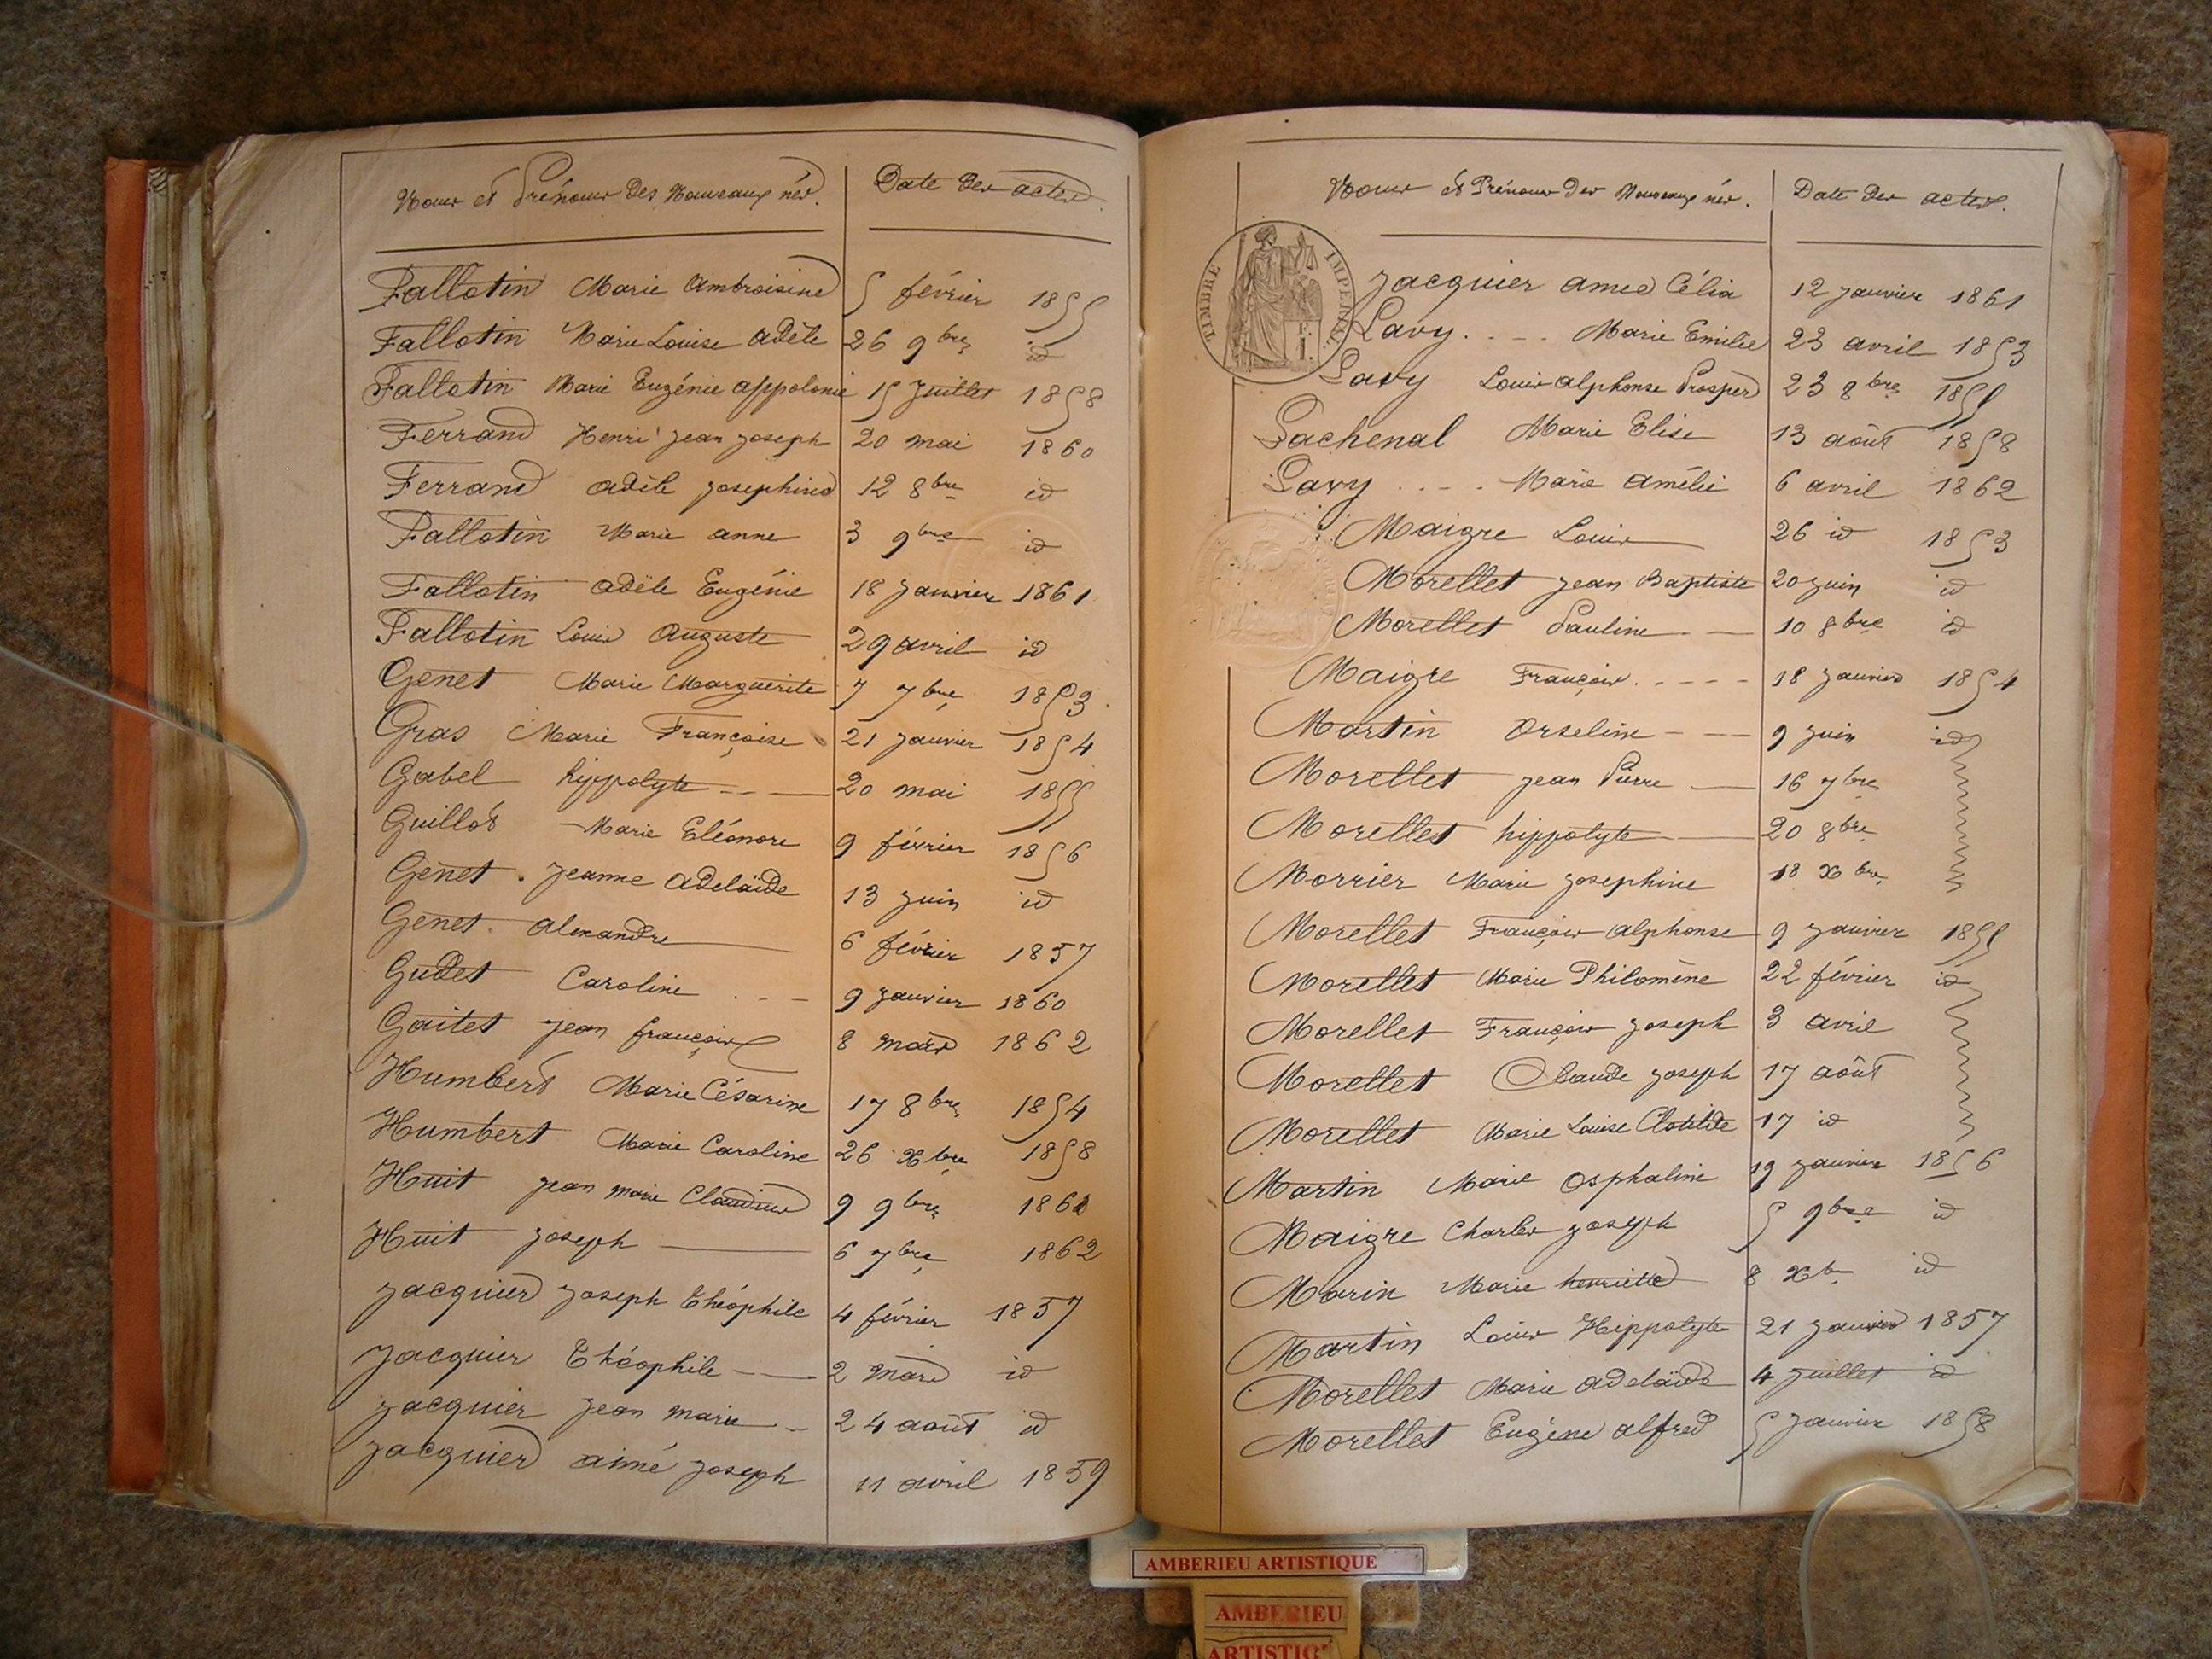 Noms et Prénoms Des Nouveaux nés. Date des actes.
Fallotin Marie Ambroisine 5 février 1855
Fallotin Marie Louise adèle 26 9bre id
Fallotin Marie Eugénie appolonie 15 Juillet 1858
Ferrand Henri jean joseph 20 mai 1860
Ferrand adèle josephine 12 8bre id
Fallotin Marie anne 3 9bre id
Fallotin adèle Eugénie 18 janvier 1861
Fallotin Louis Auguste 29 avril id
Genet Marie Marguerite 7 7bre 1853
Gras Marie Françoise 21 janvier 1854
Gabel hippolyte 20 mai 1855
Guillot Marie Eléonore 9 février 1856
Genet jeanne adelaïde 13 juin id
Genet alexandre 6 février 1857
Gudet Caroline 9 janvier 1860
Gaitet jean françois 8 mars 1862
Humbert Marie Césarine 17 8bre 1854
Humbert Marie Caroline 26 Xbre 1858
Huit jean marie Claudius 9 9bre 1860
Huit joseph 6 7bre 1862
jacquier joseph théophile 4 février 1857
jacquier théophile 2 mars id
jacquier jean marie 24 août id
jacquier aimé joseph 11 avril 1859
Noms et Prénoms Des Nouveaux nés. Date des actes.
TIMBRE IMPERIAL
jacquier amed Célia 12 janvier 1861
Lavy Marie Emilie 23 avril 1853
Lavy Louis alphonse Prosper 23 8bre 1855
Lachenal Marie Elise 13 août 1858
Lavy Marie amélie 6 avril 1862
Maigre Louis 26 id 1853
Morellet jean Baptiste 20 juin id
Morellet Pauline 10 8bre id
Maigre François 18 janvier 1854
Martin Orseline 9 juin id
Morellet jean Pierre 16 7bre
Morellet hippolyte 20 8bre
Morrier Marie josephine 18 Xbre
Morellet François alphonse 9 janvier 1855
Morellet Marie Philomène 22 février id
Morellet François joseph 3 avril
Morellet Claude joseph 17 août
Morellet Marie Louise Clotilde 17 id
Martin Marie Osphaline 19 janvier 1856
Maigre Charles joseph 5 9bre id
Marin Marie henriette 8 Xbre id
Martin Louis Hippolyte 21 janvier 1857
Morellet Marie adelaïde 4 juillet id
Morellet Eugène alfred 5 janvier 1858
AMBERIEU ARTISTIQUE
AMBERIEU
ARTISTIQ